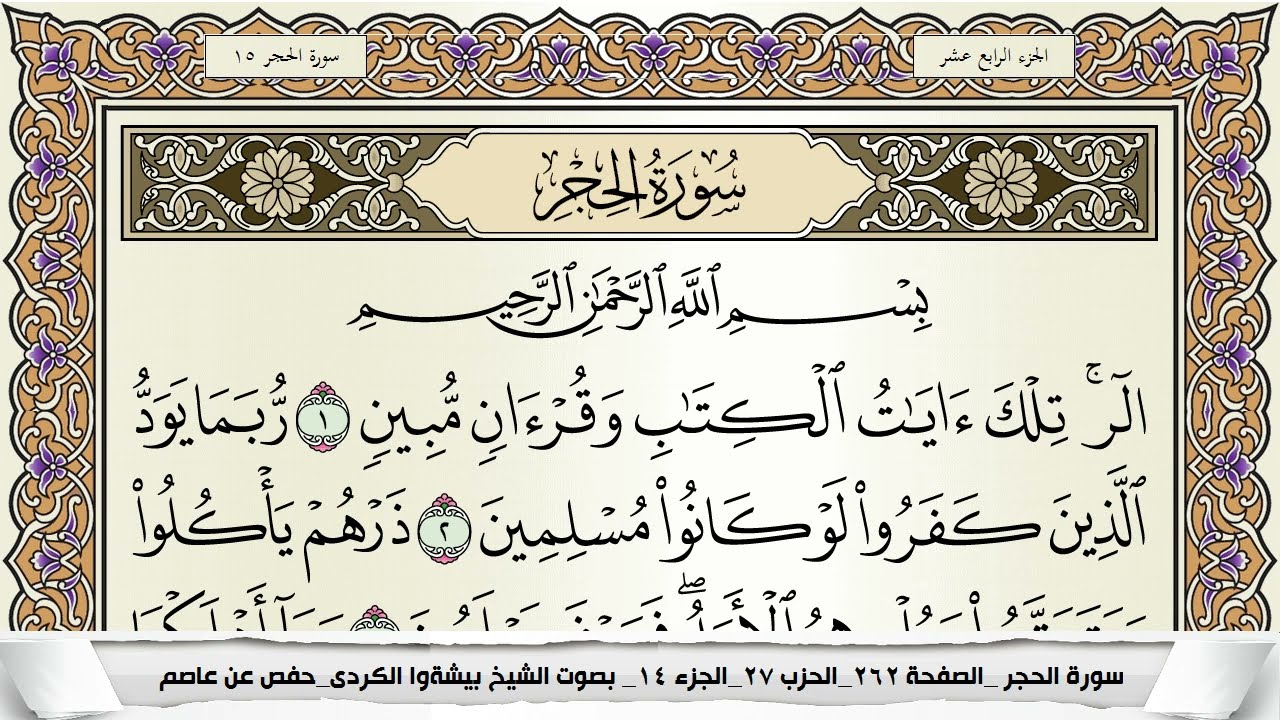 الجزء الرابع عشر
سورة الحجر ١٥
سُورَةُ الحِجْرِ
بِسْمِ ٱللَّهِ ٱلرَّحْمَٰنِ ٱلرَّحِيمِ
الٓر ۚ تِلْكَ ءَايَٰتُ ٱلْكِتَٰبِ وَقُرْءَانٍ مُّبِينٍ ١ رُّبَمَا يَوَدُّ
ٱلَّذِينَ كَفَرُوا۟ لَوْ كَانُوا۟ مُسْلِمِينَ ٢ ذَرْهُمْ يَأْكُلُوا۟
سورة الحجر _الصفحة ٢٦٢_الحزب ٢٧_الجزء ١٤_ بصوت الشيخ بيشةوا الكردى_حفص عن عاصم